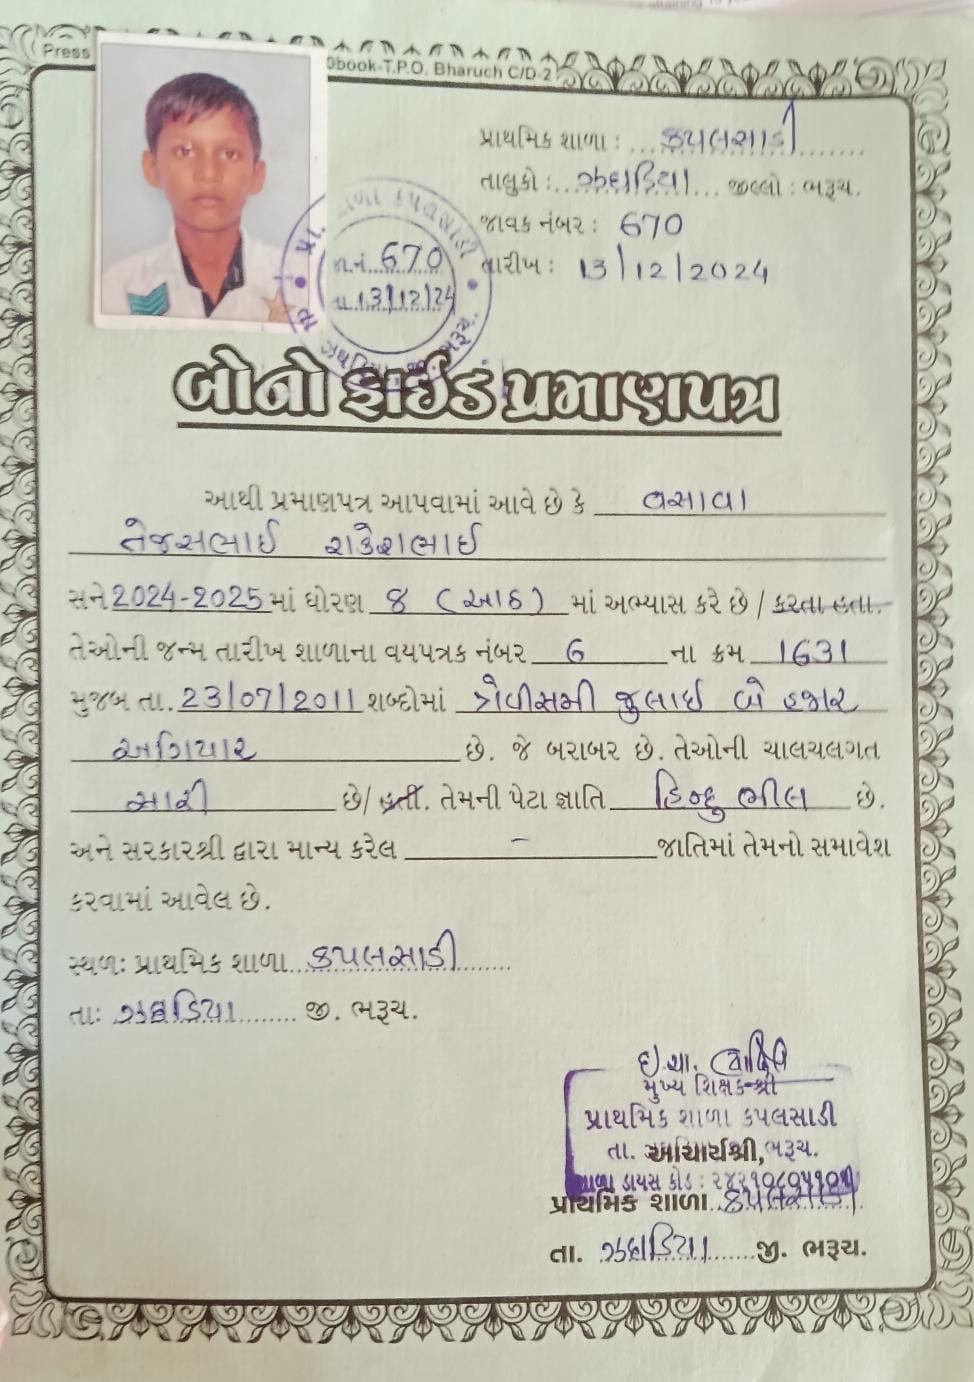 Press
0book-T.P.O. Bharuch C/D-2
પ્રાથમિક શાળા : કપલસાડી
તાલુકો : ઝઘડિયા જીલ્લો : ભરૂચ.
જાવક નંબર : 670
તારીખ : 13/12/2024
કપલસાડી
જા.નં. 670
તા 13/12/24
જી. ભરૂચ.
બોનોફાઈડ પ્રમાણપત્ર
આથી પ્રમાણપત્ર આપવામાં આવે છે કે વસાવા
તેજસભાઈ રાકેશભાઈ
સને 2024-2025 માં ધોરણ 8 (આઠ) માં અભ્યાસ કરે છે / કરતા હતા.
તેઓની જન્મ તારીખ શાળાના વયપત્રક નંબર 6 ના ક્રમ 1631
મુજબ તા. 23/07/2011 શબ્દોમાં ત્રેવીસમી જુલાઈ બે હજાર
અગિયાર છે. જે બરાબર છે. તેઓની ચાલચલગત
સારી છે/ હતી. તેમની પેટા જ્ઞાતિ હિન્દુ ભીલ છે.
અને સરકારશ્રી દ્વારા માન્ય કરેલ - જાતિમાં તેમનો સમાવેશ
કરવામાં આવેલ છે.
સ્થળ: પ્રાથમિક શાળા કપલસાડી
તા: ઝઘડિયા જી. ભરૂચ.
ઇ.ચા.
મુખ્ય શિક્ષકશ્રી
પ્રાથમિક શાળા કપલસાડી
તા. આચાર્યશ્રી, ભરૂચ.
શાળા ડાયસ કોડ :
પ્રાથમિક શાળા કપલસાડી
તા. ઝઘડિયા જી. ભરૂચ.